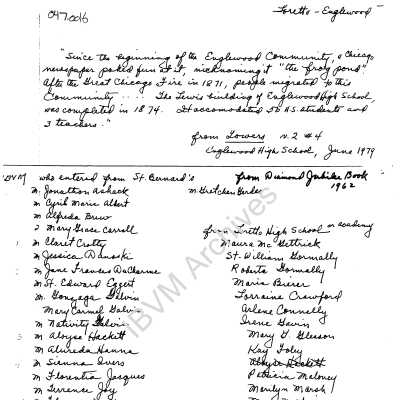 047.0016
Loretto - Englewood
"Since the beginning of the Englewood Community, a Chicago
newspaper poked fun at it, nicknaming it "the frog pond"
After the Great Chicago Fire in 1871, people migrated to this
Community .... The Lewis building of Englewood High School,
was completed in 1874. It accomodated 50 H.S. students and
3 teachers."
from Towers n.2 #4
Englewood High School, June 1979
IBVM who entered from St. Bernard's
from Diamond Jubilee Book
1962
M. Jonathon Ashack
M. Gretchen
M Cyril Marie Albert
M Alfreda Brew
2 Mary Grace Carroll
from Loretto High School or academy
M Claret Crotty
Maura Mc Gettrick
M Jessica Danoski
St. William Gormally
M Jane Frances DuCharme
Roberta Gormally
M St. Edward Eggert
Maria Beirer
M. Gonzaga Galvin
Lorraine Crawford
Mary Carmel Galvin
Arlene Connelly
M Nativity Galvin
Irene Gavin
M Aloyse Hackett
Mary G. Gleeson
M Almirda Hanna
Kay Foley
M Sienna Ivers
M Florentia Jacques
Patricia Maloney
M Terrence Joy
Marilyn Marsh
IBVM Archives